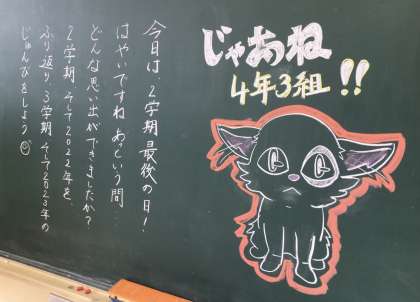 じゃあね
4年3組!!
今日は、2学期最後の日！
はやいですね。あっという間。
どんな思い出ができましたか？
2学期、そして2022年を、
ふり返り、3学期、そして2023年の
じゅんびをしよう